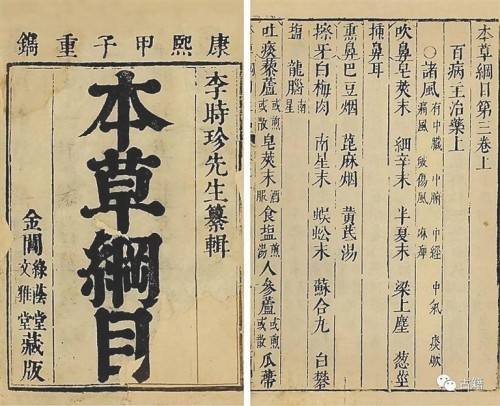 康熙甲子重鐫
李時珍先生纂輯
本草綱目
金閶綠蔭堂文雅堂藏版
本草綱目第三卷上
百病主治藥上
○諸風 有中臟 中腑 中經 中氣 痰厥 痛風 破傷風 麻痺
吹鼻皂莢末 細辛末 半夏末 梁上塵 葱莖
插鼻耳
熏鼻巴豆烟 蓖麻烟 黄芪湯
擦牙白梅肉 南星末 蜈蚣末 蘇合丸 白礬
鹽 龍腦南星
吐痰藜蘆或煎或散 皂莢末酒服 食塩煎湯 人參蘆或煎或散 瓜蔕
古籍